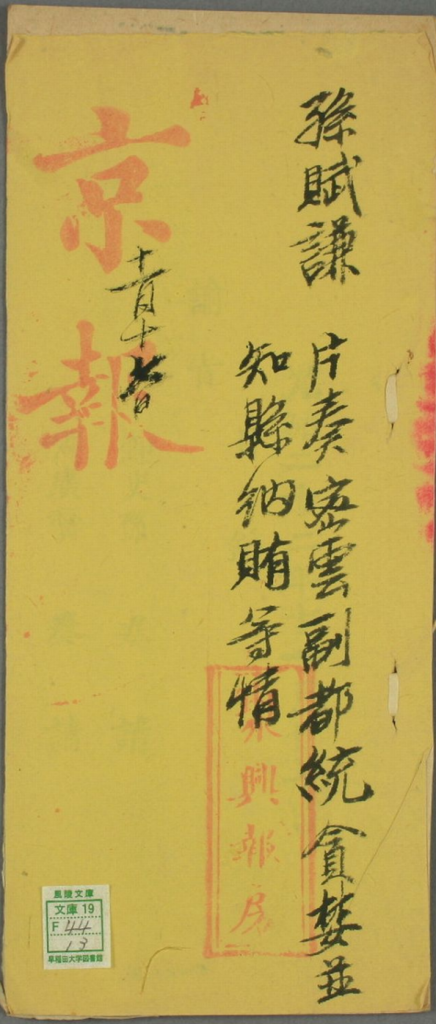 孫賦謙
片奏密雲副都統貪婪並
知縣納賄等情
京報
聚興報房
風陵文庫
文庫 19
F 44
13
早稲田大学図書館